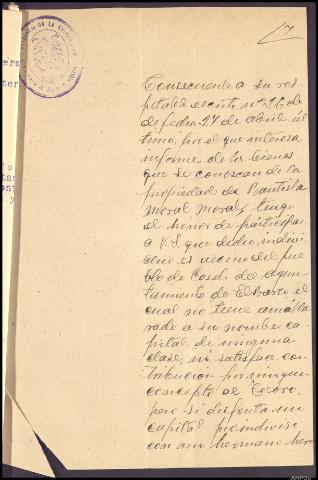 Consecuente a su res
petable escrito nº 26 de
de fecha 27 de Abril úl
timo, por el que interesa
informe de los bienes
que se conozcan de la
propiedad de Bautista
Moral Moral, tengo
el honor de participar
a V.S. que dicho indivi
duo es vecino del pue
blo de del Ayun
tamiento de El Barco el
cual no tiene amilla
rado a su nombre ca
pital de ninguna
clase, ni satisface con
tribución por ningun
concepto al Tesoro,
pero si disfruta un
capital proindiviso
con un hermano